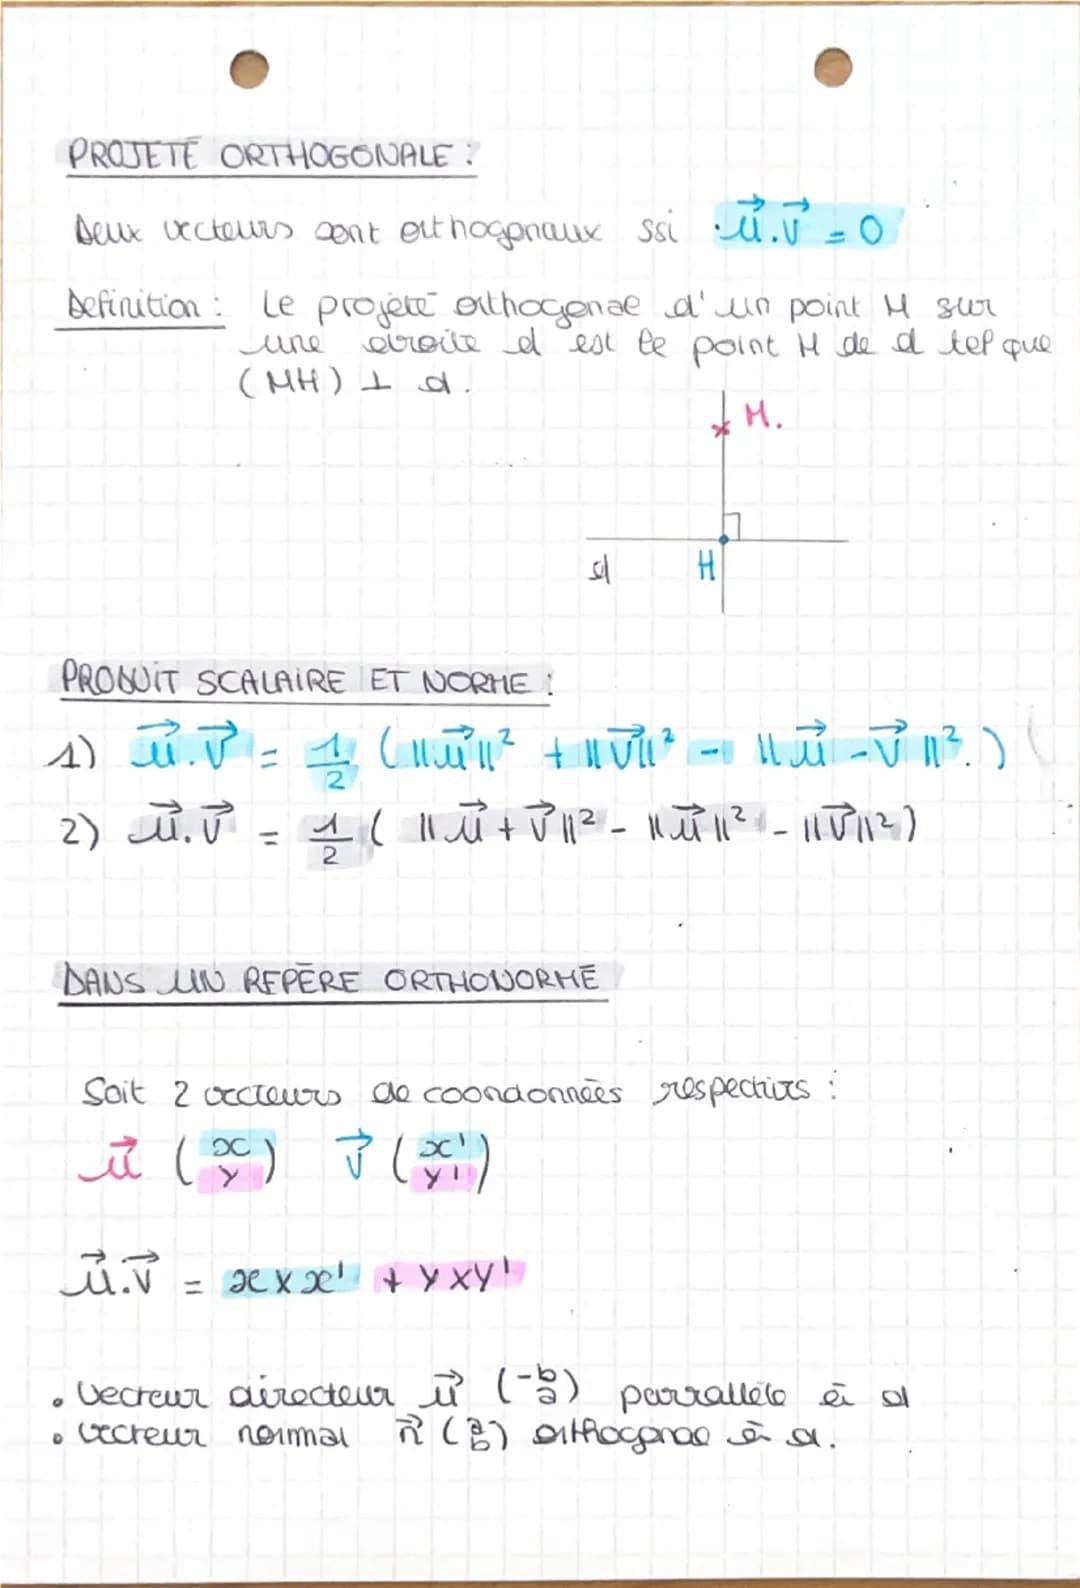 PROJETÉ ORTHOGONALE :
Deux vecteurs sont orthogonaux ssi u⃗.v⃗ = 0
Definition : Le projeté orthogonae d'un point M sur
une droite d est le point H de d tel que
(MH) ⊥ d.
M.
d H
PRODUIT SCALAIRE ET NORME :
1) u⃗.v⃗ = 1/2 (||u⃗||² + ||v⃗||² - ||u⃗ - v⃗||².)
2) u⃗.v⃗ = 1/2 ( ||u⃗ + v⃗||² - ||u⃗||² - ||v⃗||²)
DANS UN REPÈRE ORTHONORMÉ
Soit 2 vecteurs de coordonnées respectivs :
u⃗ (x y) v⃗ (x' y')
u⃗.v⃗ = x x x' + y x y'
• Vecteur directeur u⃗ (-b a) parrallèle à d
• vecteur normal n⃗ (a b) orthogonae à d.